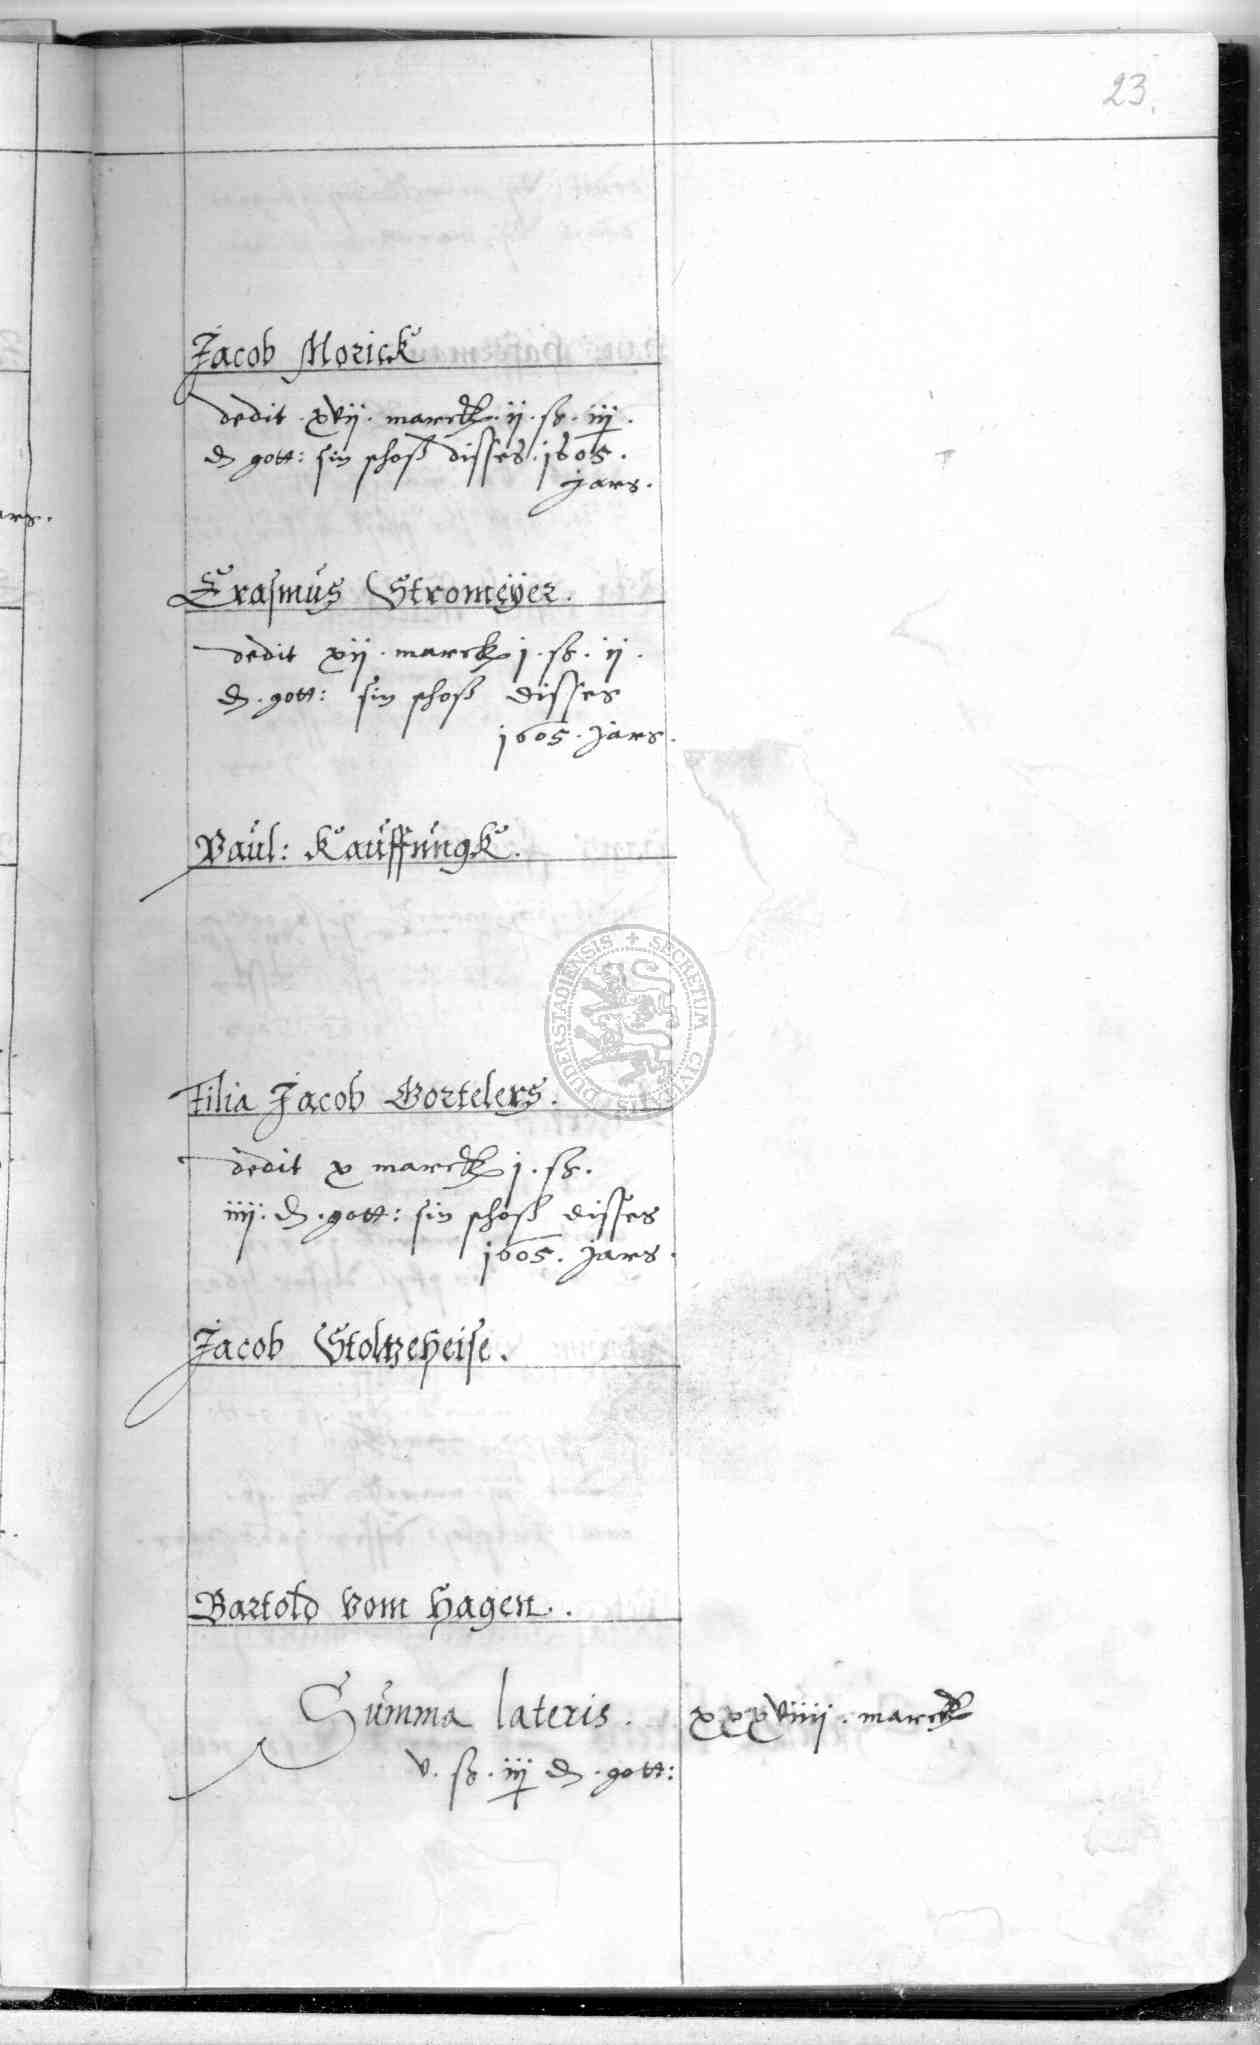 23.
Jacob Morick
dedit . xvii . marck . ii . sß . iii .
d gott: sin schoß disses . 1605 .
jars .
ars .
Erasmus Stromeÿer .
dedit xii . marck j . sß . ii .
d . gott: sin schoß disses
1605 . jars .
Paul: Kauffungk .
SECRETUM CIVITATIS DUDERSTADIENSIS
Filia Jacob Bortelers .
dedit x marck j . sß .
iiij . d . gott: sin schoß disses
1605 . jars .
Jacob Stoltzeheise .
Bartold vom Hagen .
Summa lateris . xxxviiij . marck
v . sß . iij d . gott: